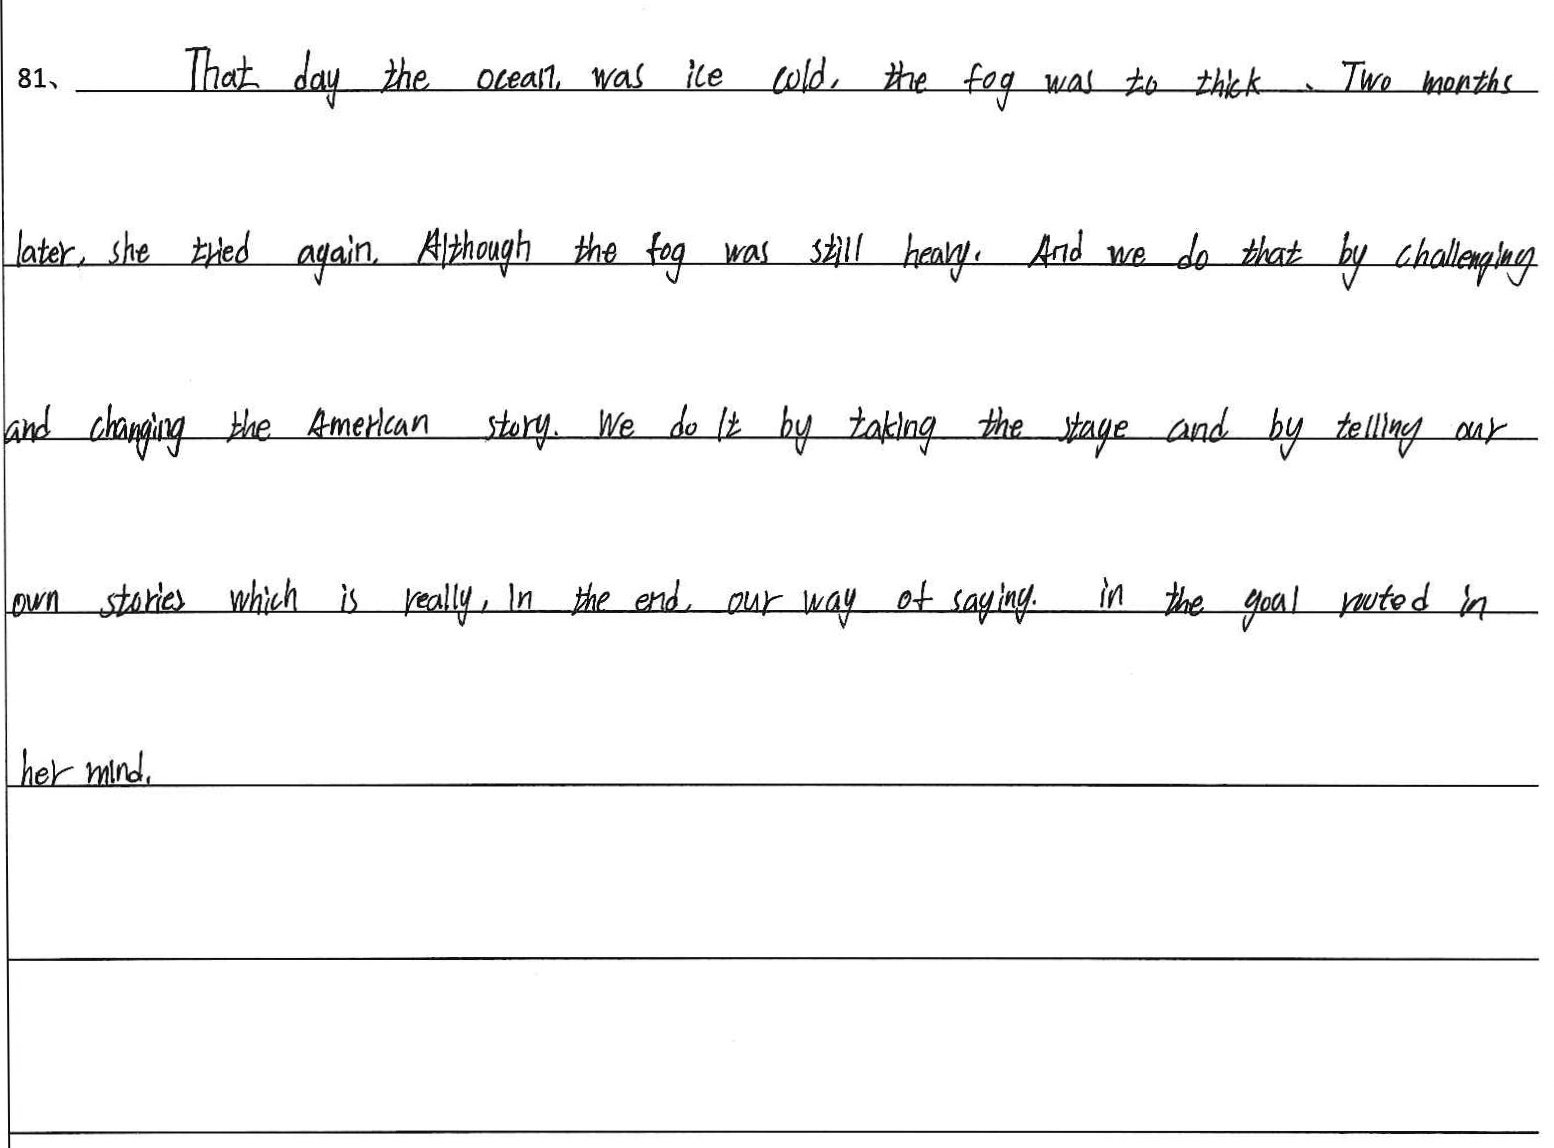 81、 That day the ocean, was ice cold, the fog was to thick 、 Two months
later, she tried again. Although the fog was still heavy. And we do that by challenging
and changing the American story. We do it by taking the stage and by telling our
own stories which is really, in the end, our way of saying. in the goal rooted in
her mind.